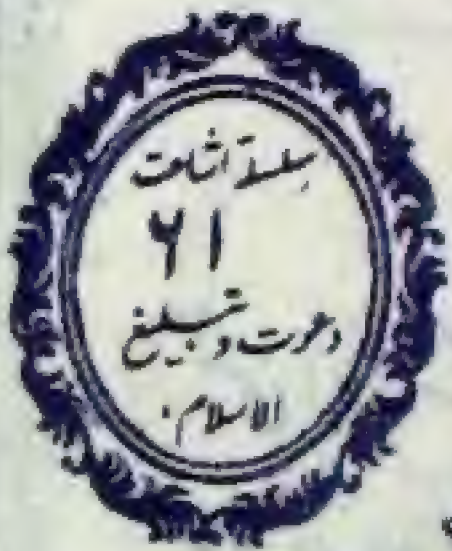 سلسلۂ اشاعت
۶۱
دعوت و تبلیغ
الاسلام